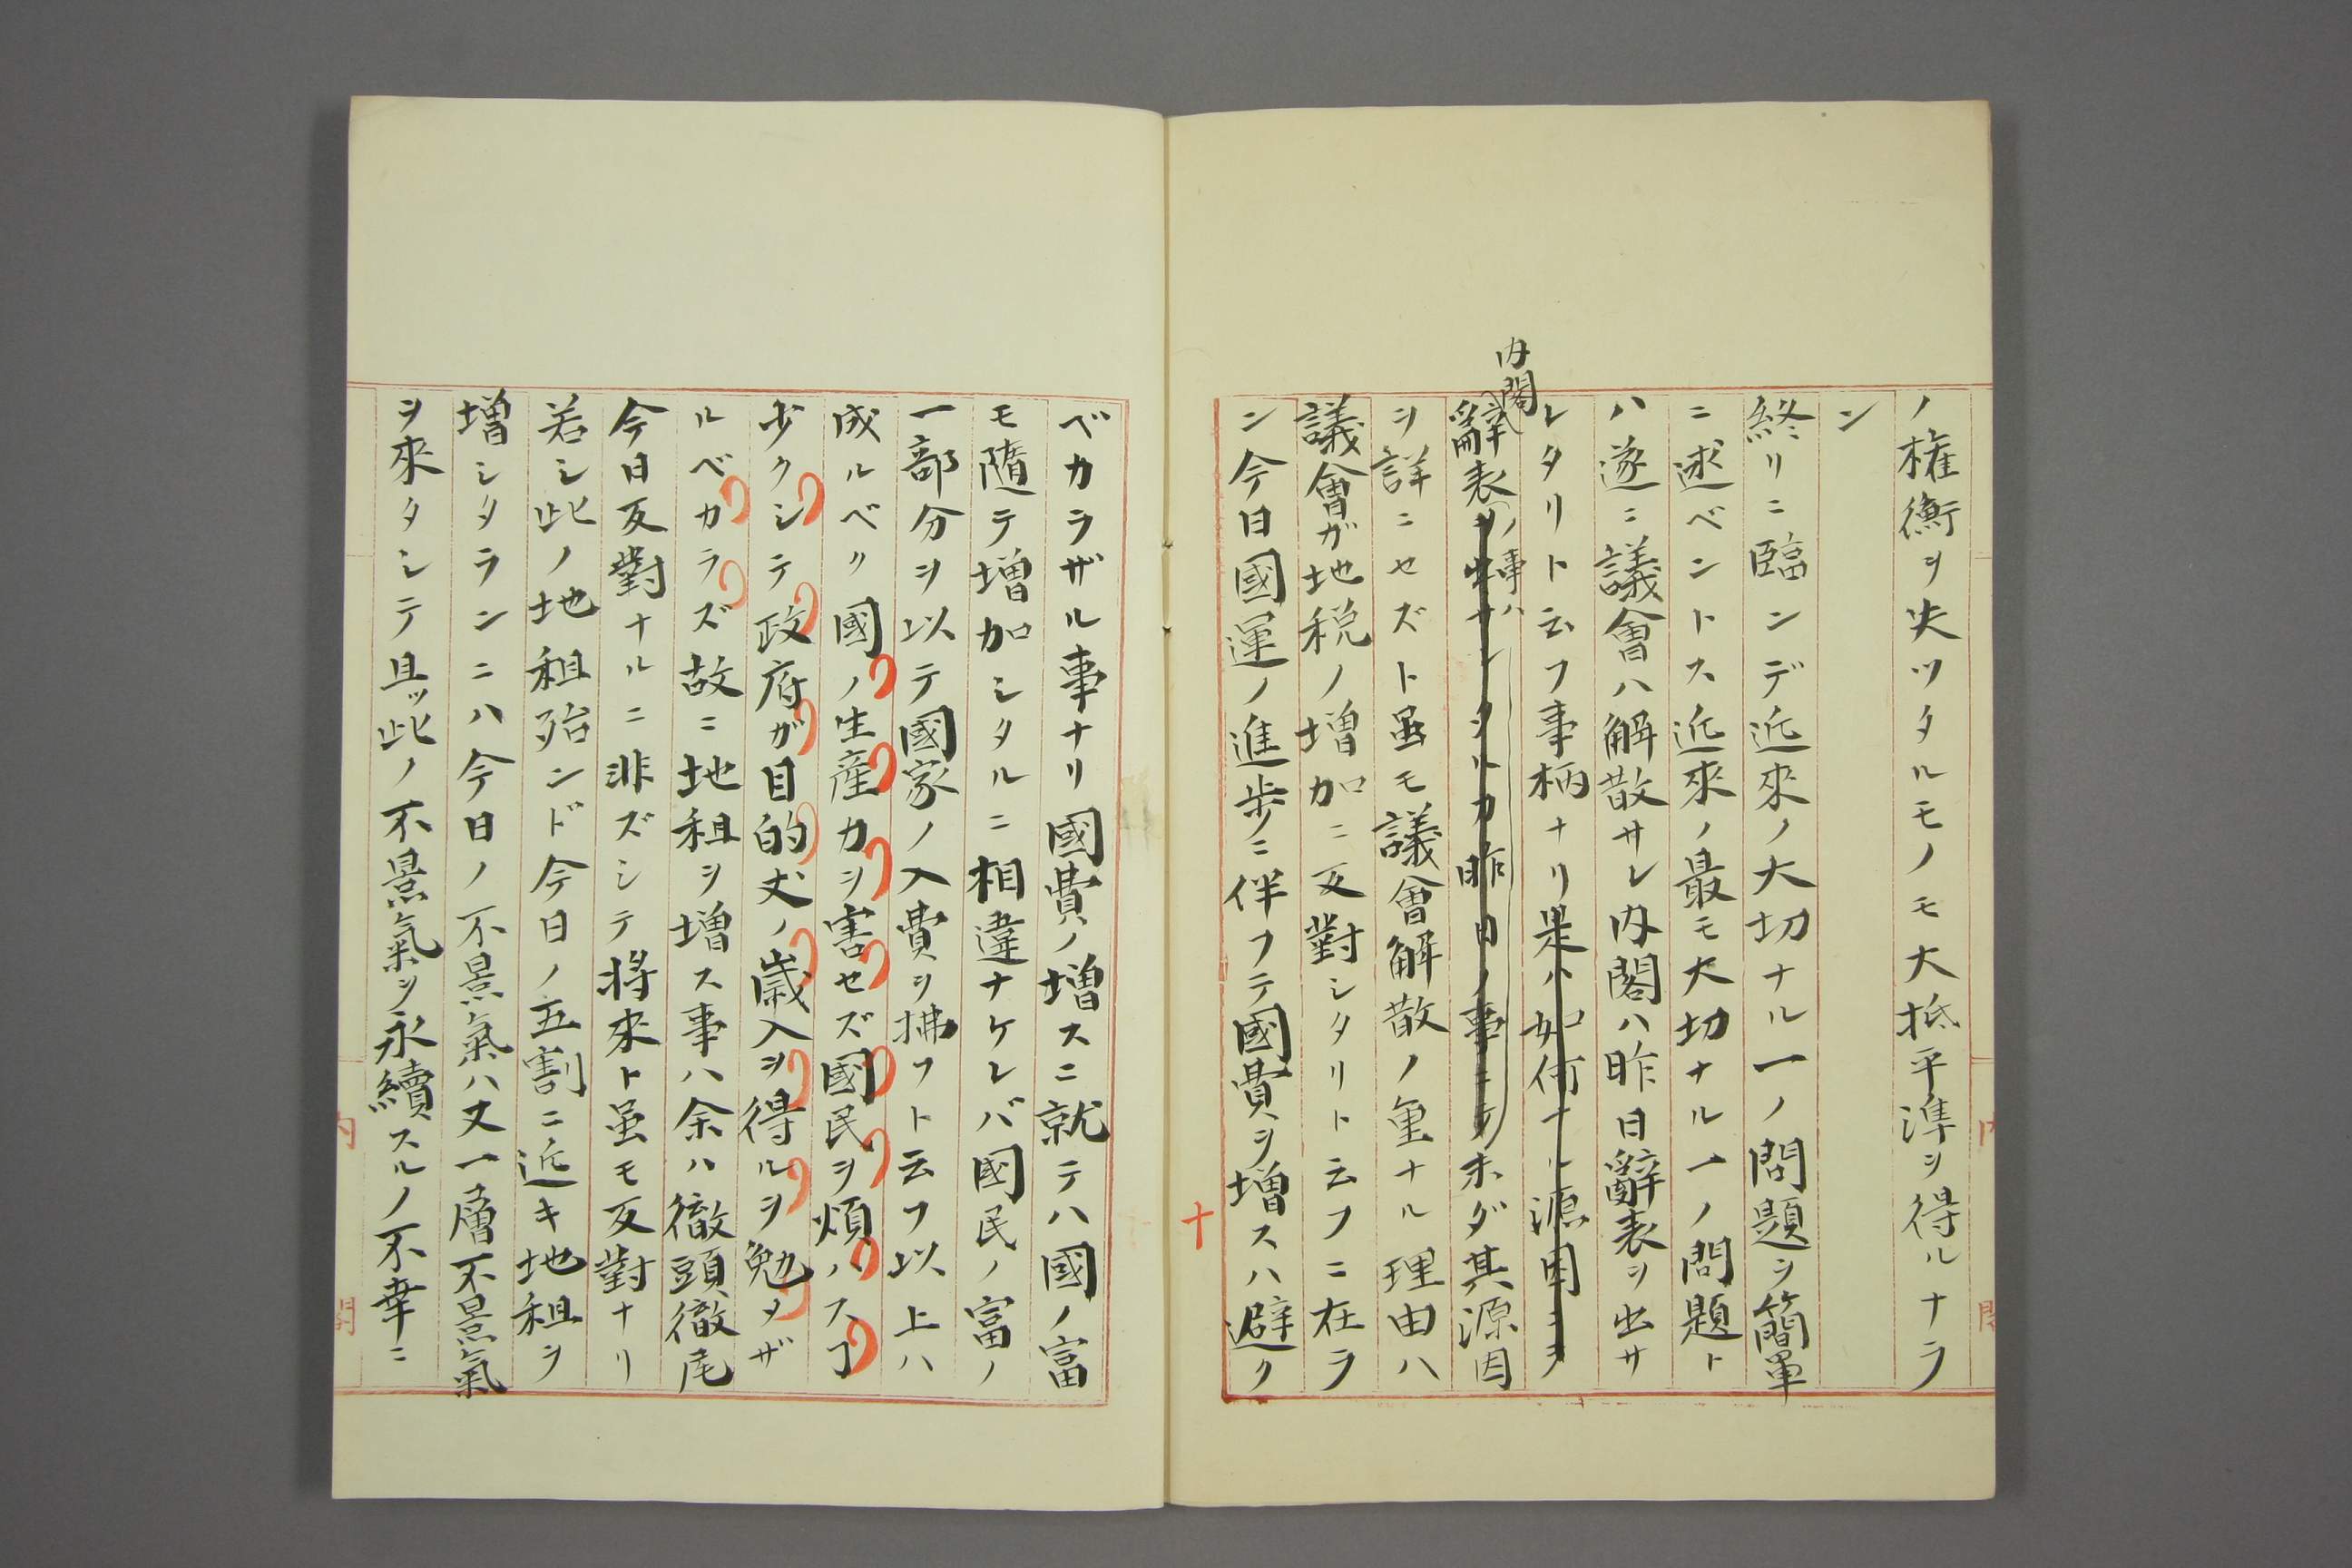 ノ権衡ヲ失ツタルモノモ大抵平準ヲ得ルナラ
ン
終リニ臨ンデ近來ノ大切ナル一ノ問題ヲ簡單
ニ述ベントス近來ノ最モ大切ナル一ノ問題ト
ハ遂ニ議會ハ解散サレ内閣ハ昨日辭表ヲ出サ
レタリト云フ事柄ナリ是ハ如何ナル源因ニヲ
内閣
辭表ヲ
ノ事ハ
昨日ノ事ニテ未ダ其源因
ヲ詳ニセズト虽モ議會解散ノ重ナル理由ハ
議會ガ地税ノ増加ニ反對シタリト云フニ在ラ
ン今日國運ノ進歩ニ伴フテ國費ヲ増スハ避ク
十
ベカラザル事ナリ國費ノ増スニ就テハ國ノ富
モ隨テ増加シタルニ相違ナケレバ國民ノ富ノ
一部分ヲ以テ國家ノ入費ヲ拂フト云フ以上ハ
成ルベク國ノ生産力ヲ害セズ國民ヲ煩ハスヿ
少クシテ政府ガ目的丈ノ歳入ヲ得ルヲ勉メザ
ルベカラズ故ニ地租ヲ増ス事ハ余ハ徹頭徹尾
今日反對ナルニ非ズシテ将來ト虽モ反對ナリ
若シ此ノ地租殆ンド今日ノ五割ニ近キ地租ヲ
増シタランニハ今日ノ不景氣ハ丈一層不景氣
ヲ來タシテ且ツ此ノ不景氣ヲ永續スルノ不幸ニ
内
閣